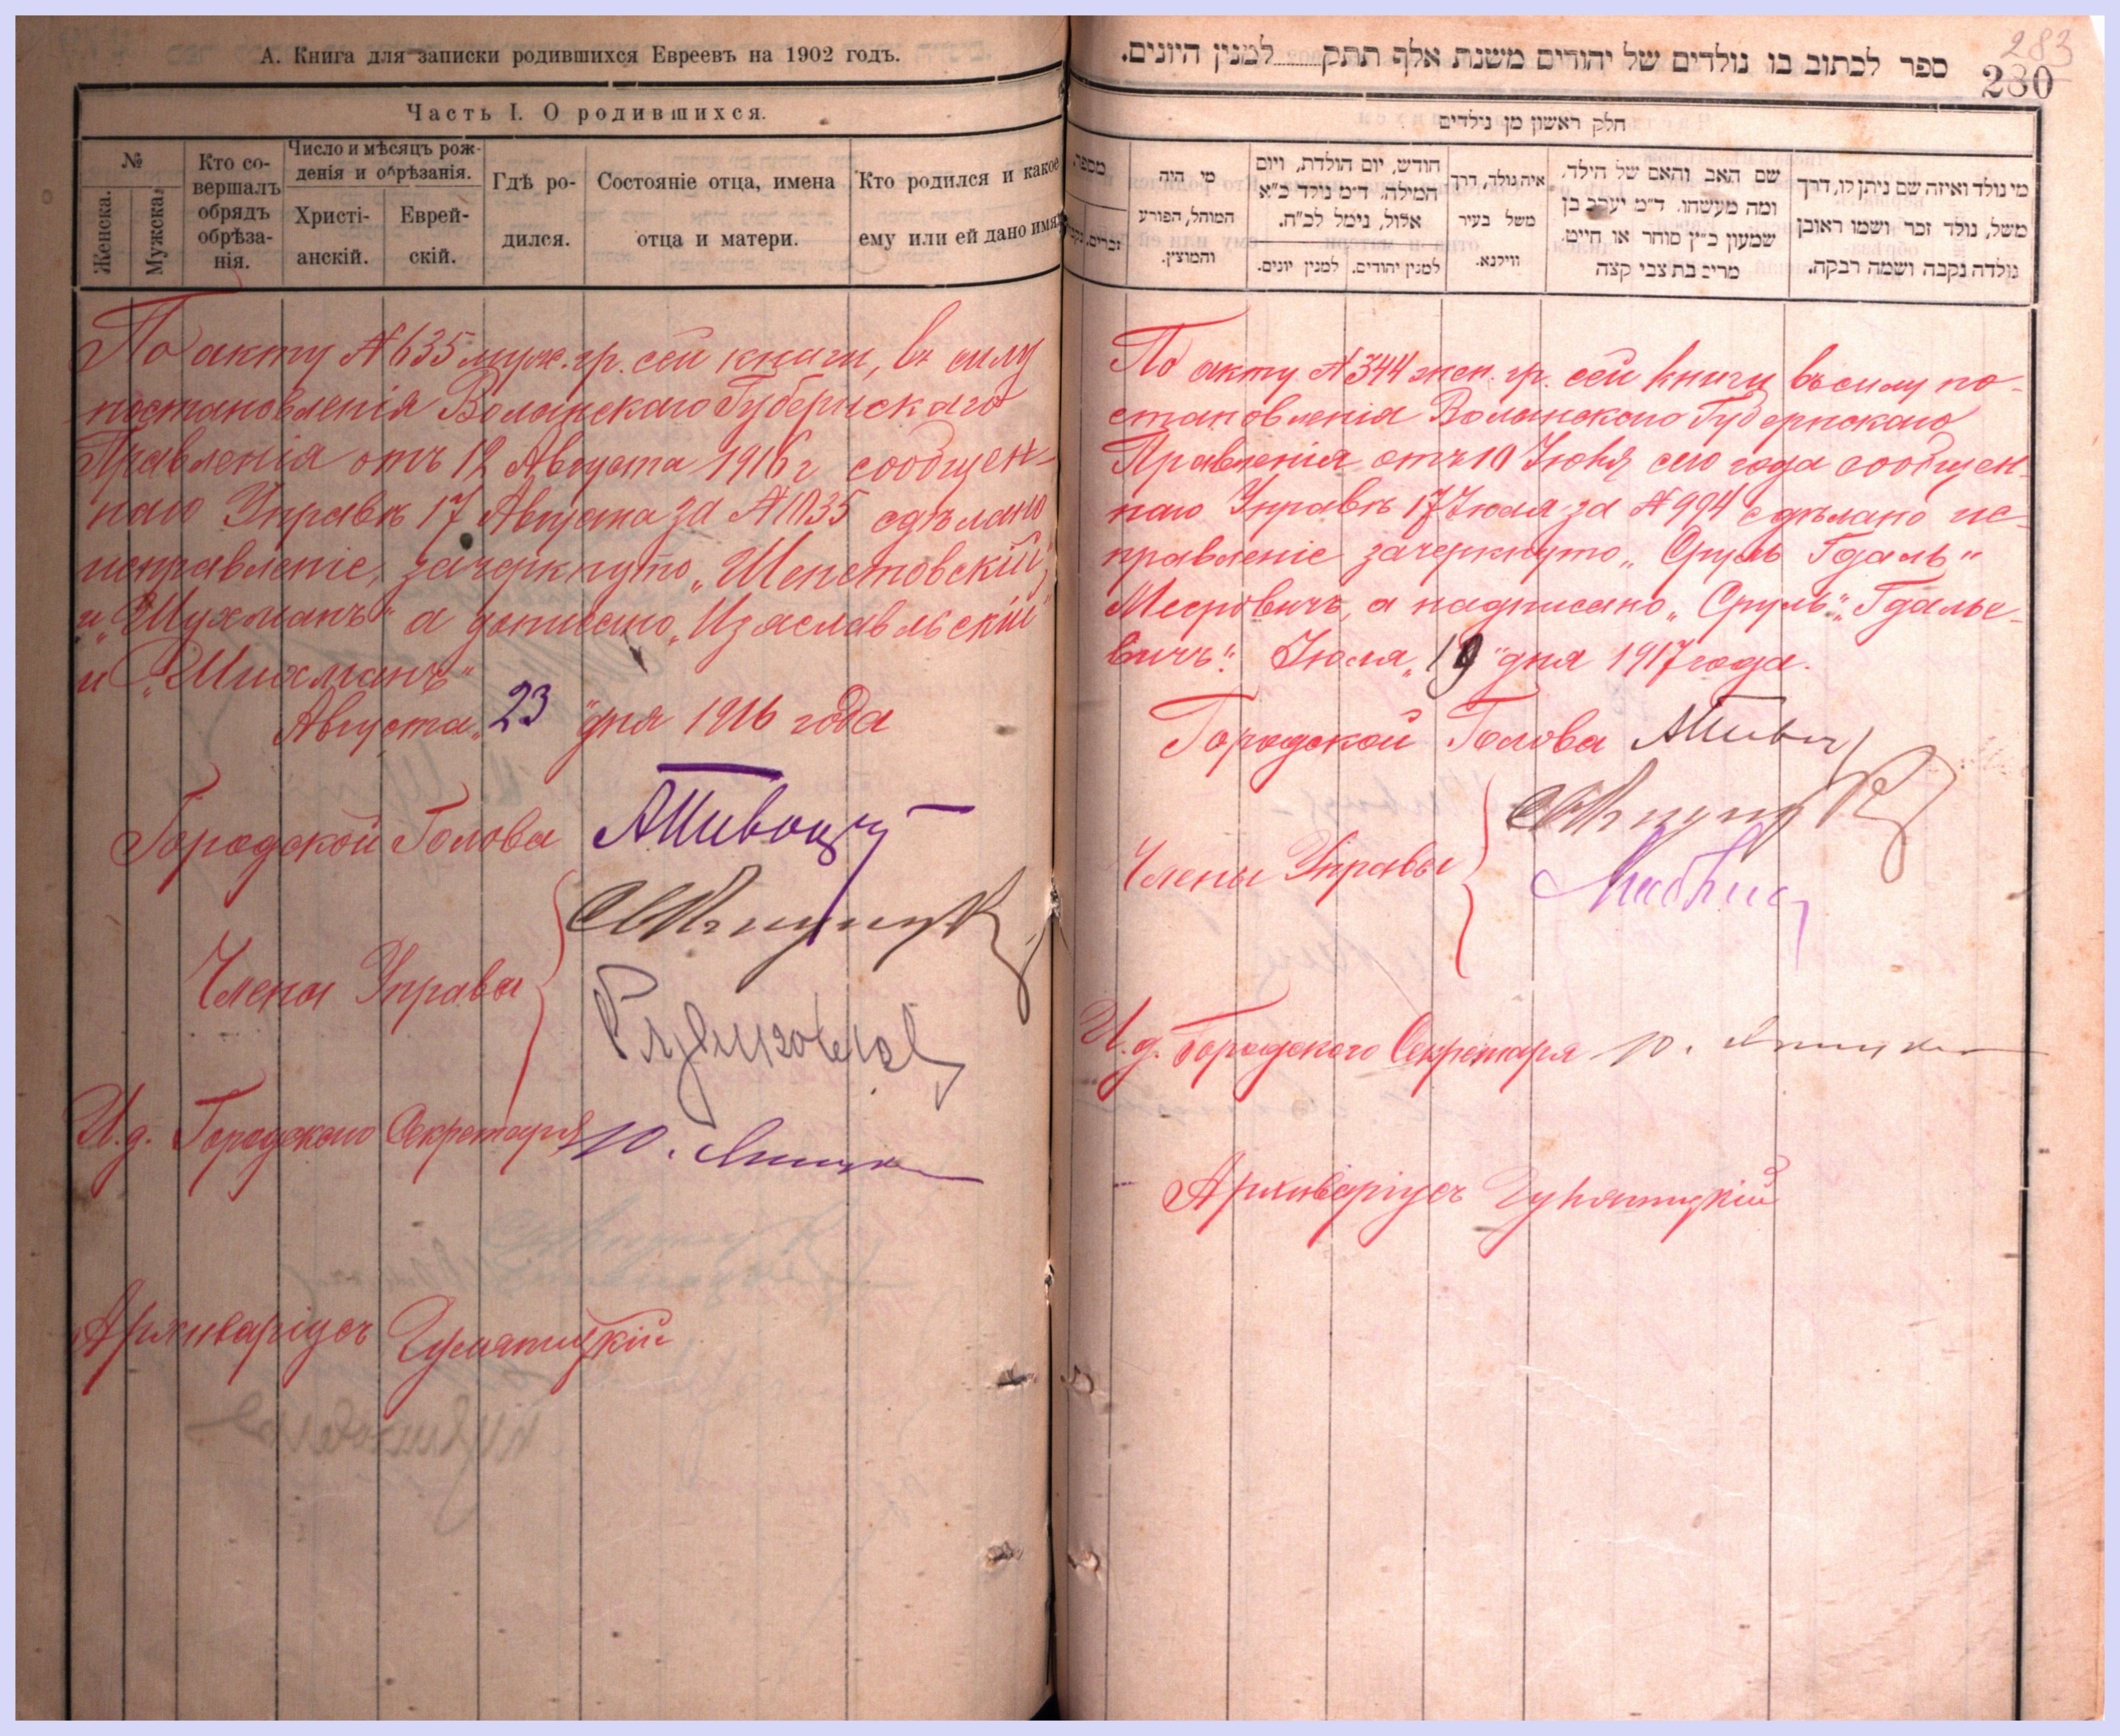 А. Книга для записки родившихся Евреевъ на 1902 годъ.
Часть I. О родившихся.
№
Женска.
Мужска.
Кто со-
вершалъ
обрядъ
обрѣза-
нія.
Число и мѣсяцъ рож-
денія и обрѣзанія.
Христі-
анскій.
Еврей-
скій.
Гдѣ ро-
дился.
Состояніе отца, имена
отца и матери.
Кто родился и какое
ему или ей дано имя.
По акту №635 муж. гр. сей книги, въ силу
постановленія Волынскаго Губернскаго
Правленія отъ 12 Августа 1916 г сообщен-
наго Управѣ 17 Августа за №1035 сдѣлано
исправленіе, зачеркнуто „Шепетовскій"
и „Шухманъ" а дописано „Изяславльскій"
и „Шихманъ"
Августа „23" дня 1916 года
Городской Голова
Члены Управы
И.д. Городского Секретаря
Архиваріусъ
283
280
ספר לכתוב בו נולדים של יהודים משנת אלף תתק למנין היונים.
חלק ראשון מן נילדים
מספר
זכרים. נקבות
מי היה
המוהל, הפורע
והמוצץ.
חודש, יום הולדת, ויום
המילה. ד״מ נילד כ״א
אלול, נימל לכ״ח.
למנין יהודים.
למנין יונים.
איה נולד, דרך
משל בעיר
ווילנא.
שם האב והאם של הילד.
ומה מעשהו. ד״מ יעקב בן
שמעון כ״ץ סוחר או חייט
מרים בת צבי קצה
מי נולד ואיזה שם ניתן לו, דרך
משל, נולד זכר ושמו ראובן
נולדה נקבה ושמה רבקה.
По акту №344 жен. гр. сей книги въ силу по-
становленія Волынскаго Губернскаго
Правленія отъ 10 Іюня сего года сообщен-
наго Управѣ 17 Іюля за №994 сдѣлано ис-
правленіе зачеркнуто „Сруль Гдаль"
Мееровичъ, а надписано „Сруль" „Гдалье-
вичъ". Іюля „19" дня 1917 года.
Городской Голова
Члены Управы
И.д. Городского Секретаря
Архиваріусъ